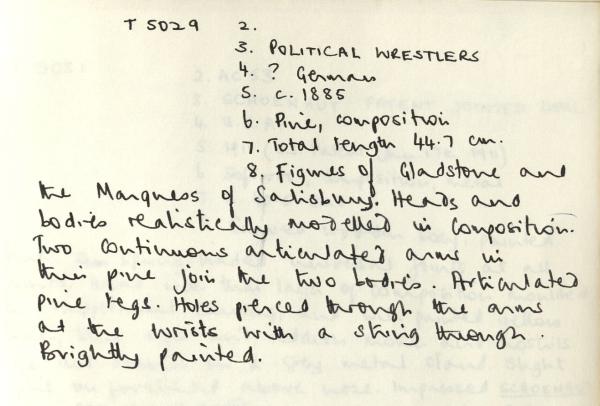 T 5029 2.
3. POLITICAL WRESTLERS
4. ? German
5. c. 1885
6. Pine, composition
7. Total length 44.7 cm.
8. Figures of Gladstone and
the Marquess of Salisbury. Heads and
bodies realistically modelled in composition.
Two continuous articulated arms in
thin pine join the two bodies. Articulated
pine legs. Holes pierced through the arms
at the wrists with a string through.
Brightly painted.